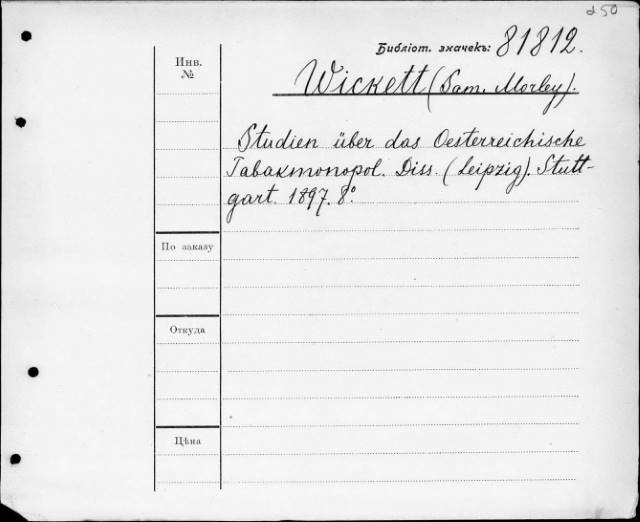 250
Библiот. значекъ: 81812.
Инв.
№
Wickett (Sam. Morley).
Studien über das Oesterreichische
Tabakmonopol. Diss. (Leipzig). Stutt-
gart. 1897. 8°.
По заказу
Откуда
Цѣна